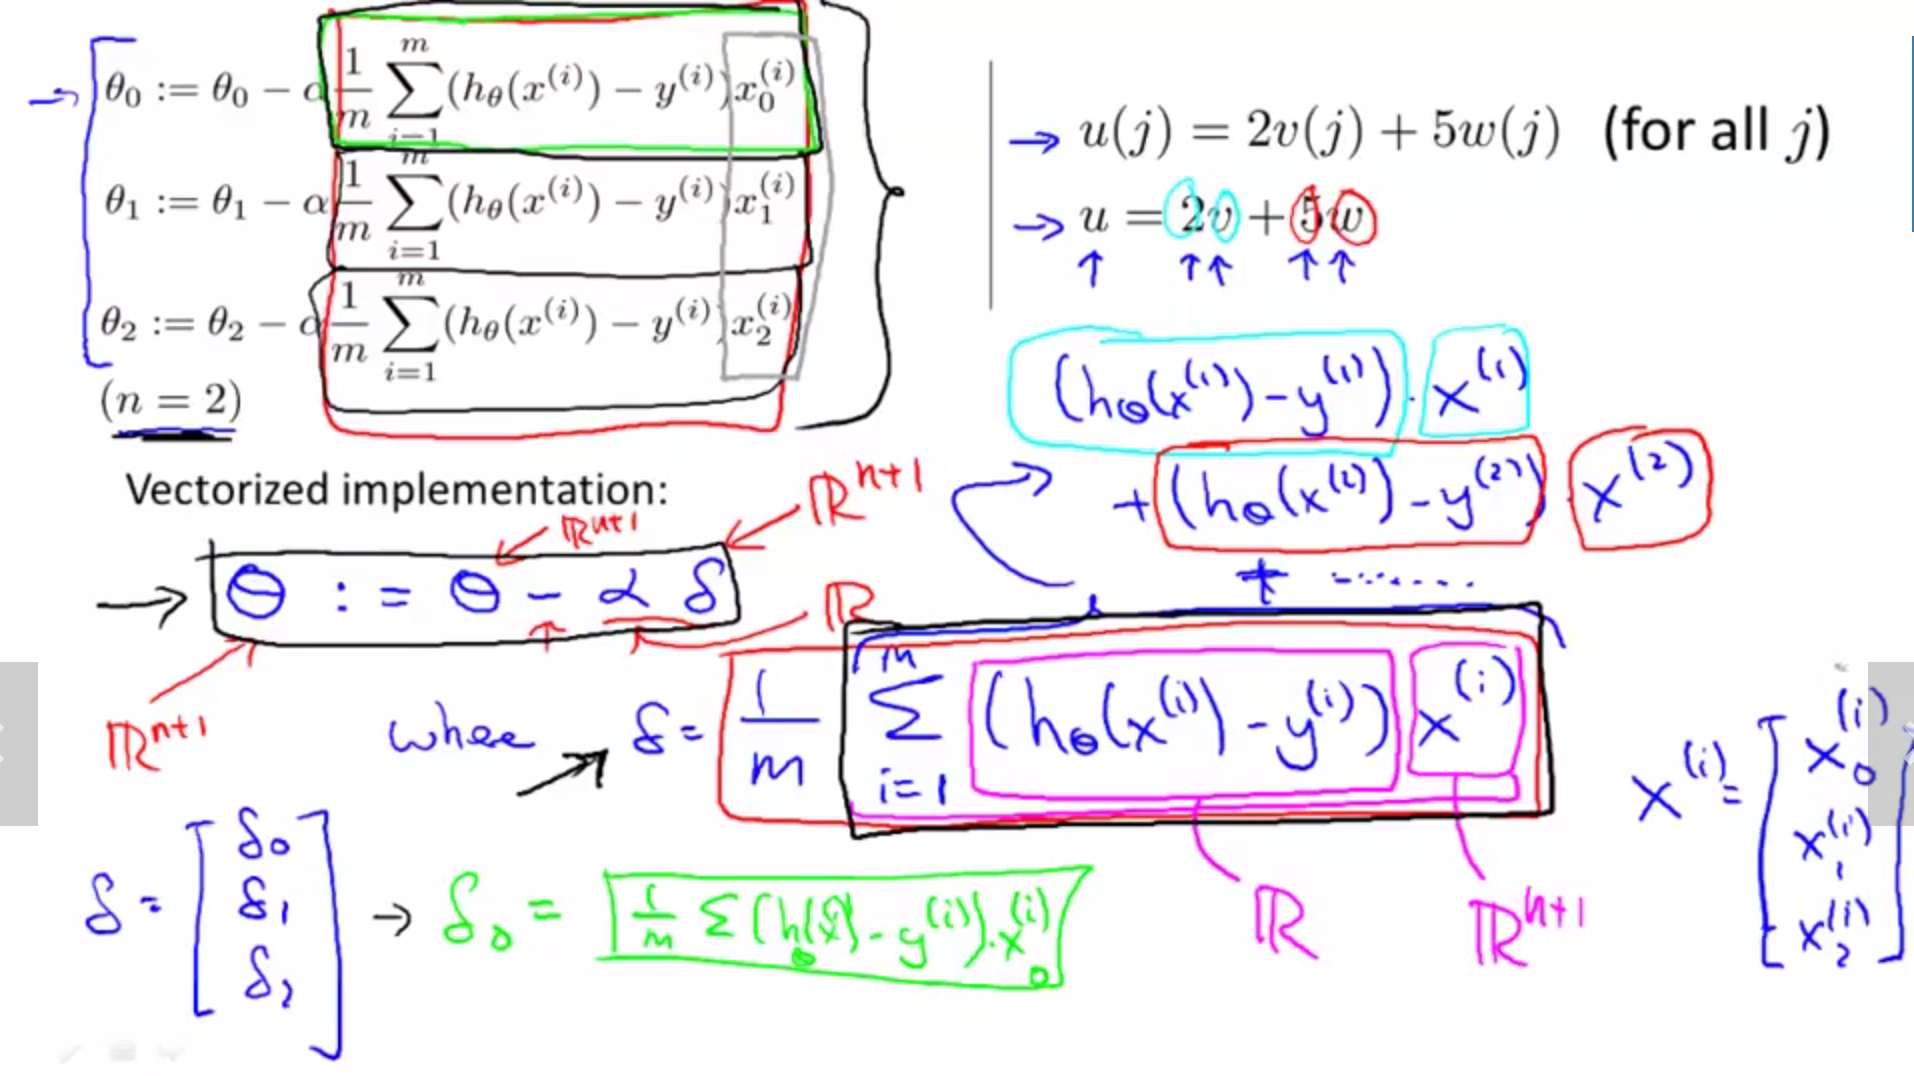 θ₀ := θ₀ − α 1/m ∑_{i=1}^{m} (h_θ(x^(i)) − y^(i)) x₀^(i)
θ₁ := θ₁ − α 1/m ∑_{i=1}^{m} (h_θ(x^(i)) − y^(i)) x₁^(i)
θ₂ := θ₂ − α 1/m ∑_{i=1}^{m} (h_θ(x^(i)) − y^(i)) x₂^(i)
(n = 2)
→ u(j) = 2v(j) + 5w(j) (for all j)
→ u = 2v + 5w
↑ ↑↑ ↑↑
(h_θ(x^(1)) − y^(1)) · x^(1)
+ (h_θ(x^(2)) − y^(2)) · x^(2)
+ ........
Vectorized implementation:
ℝ^{n+1} ℝ^{n+1}
→ θ := θ − α δ
ℝ
ℝ^{n+1}
where δ = 1/m ∑_{i=1}^{m} (h_θ(x^(i)) − y^(i)) x^(i)
ℝ ℝ^{n+1}
x^(i) = [x₀^(i) x₁^(i) x₂^(i)]
δ = [δ₀ δ₁ δ₂] → δ₀ = 1/m ∑ (h_θ(x^(i)) − y^(i)) · x₀^(i)